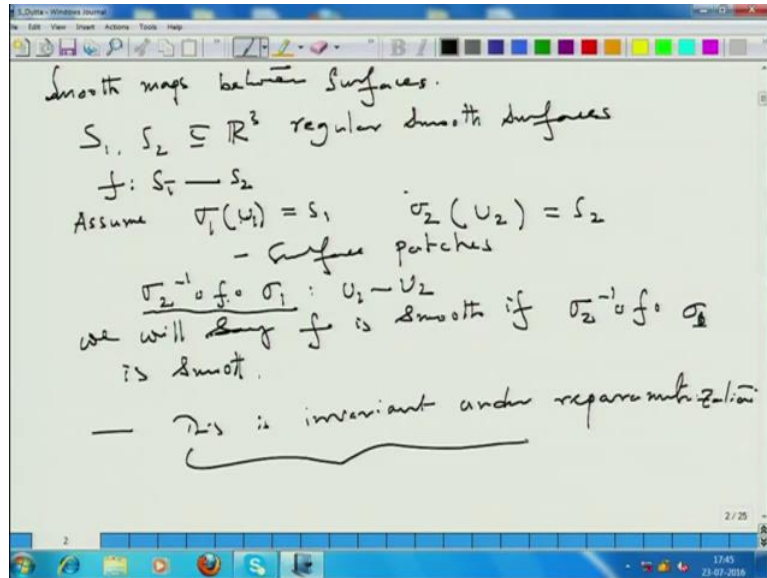 S_Dutta - Windows Journal
File Edit View Insert Actions Tools Help
Smooth maps between Surfaces.
S₁, S₂ ⊆ ℝ³ regular smooth surfaces
f: S₁ — S₂
Assume σ₁(U₁) = S₁ σ₂(U₂) = S₂
- Surface patches
σ₂⁻¹∘f∘σ₁ : U₁ — U₂
we will say f is smooth if σ₂⁻¹∘f∘σ₁
is smoot.
— This is invariant under reparametrization
2 / 25
2
17:45
23-07-2016